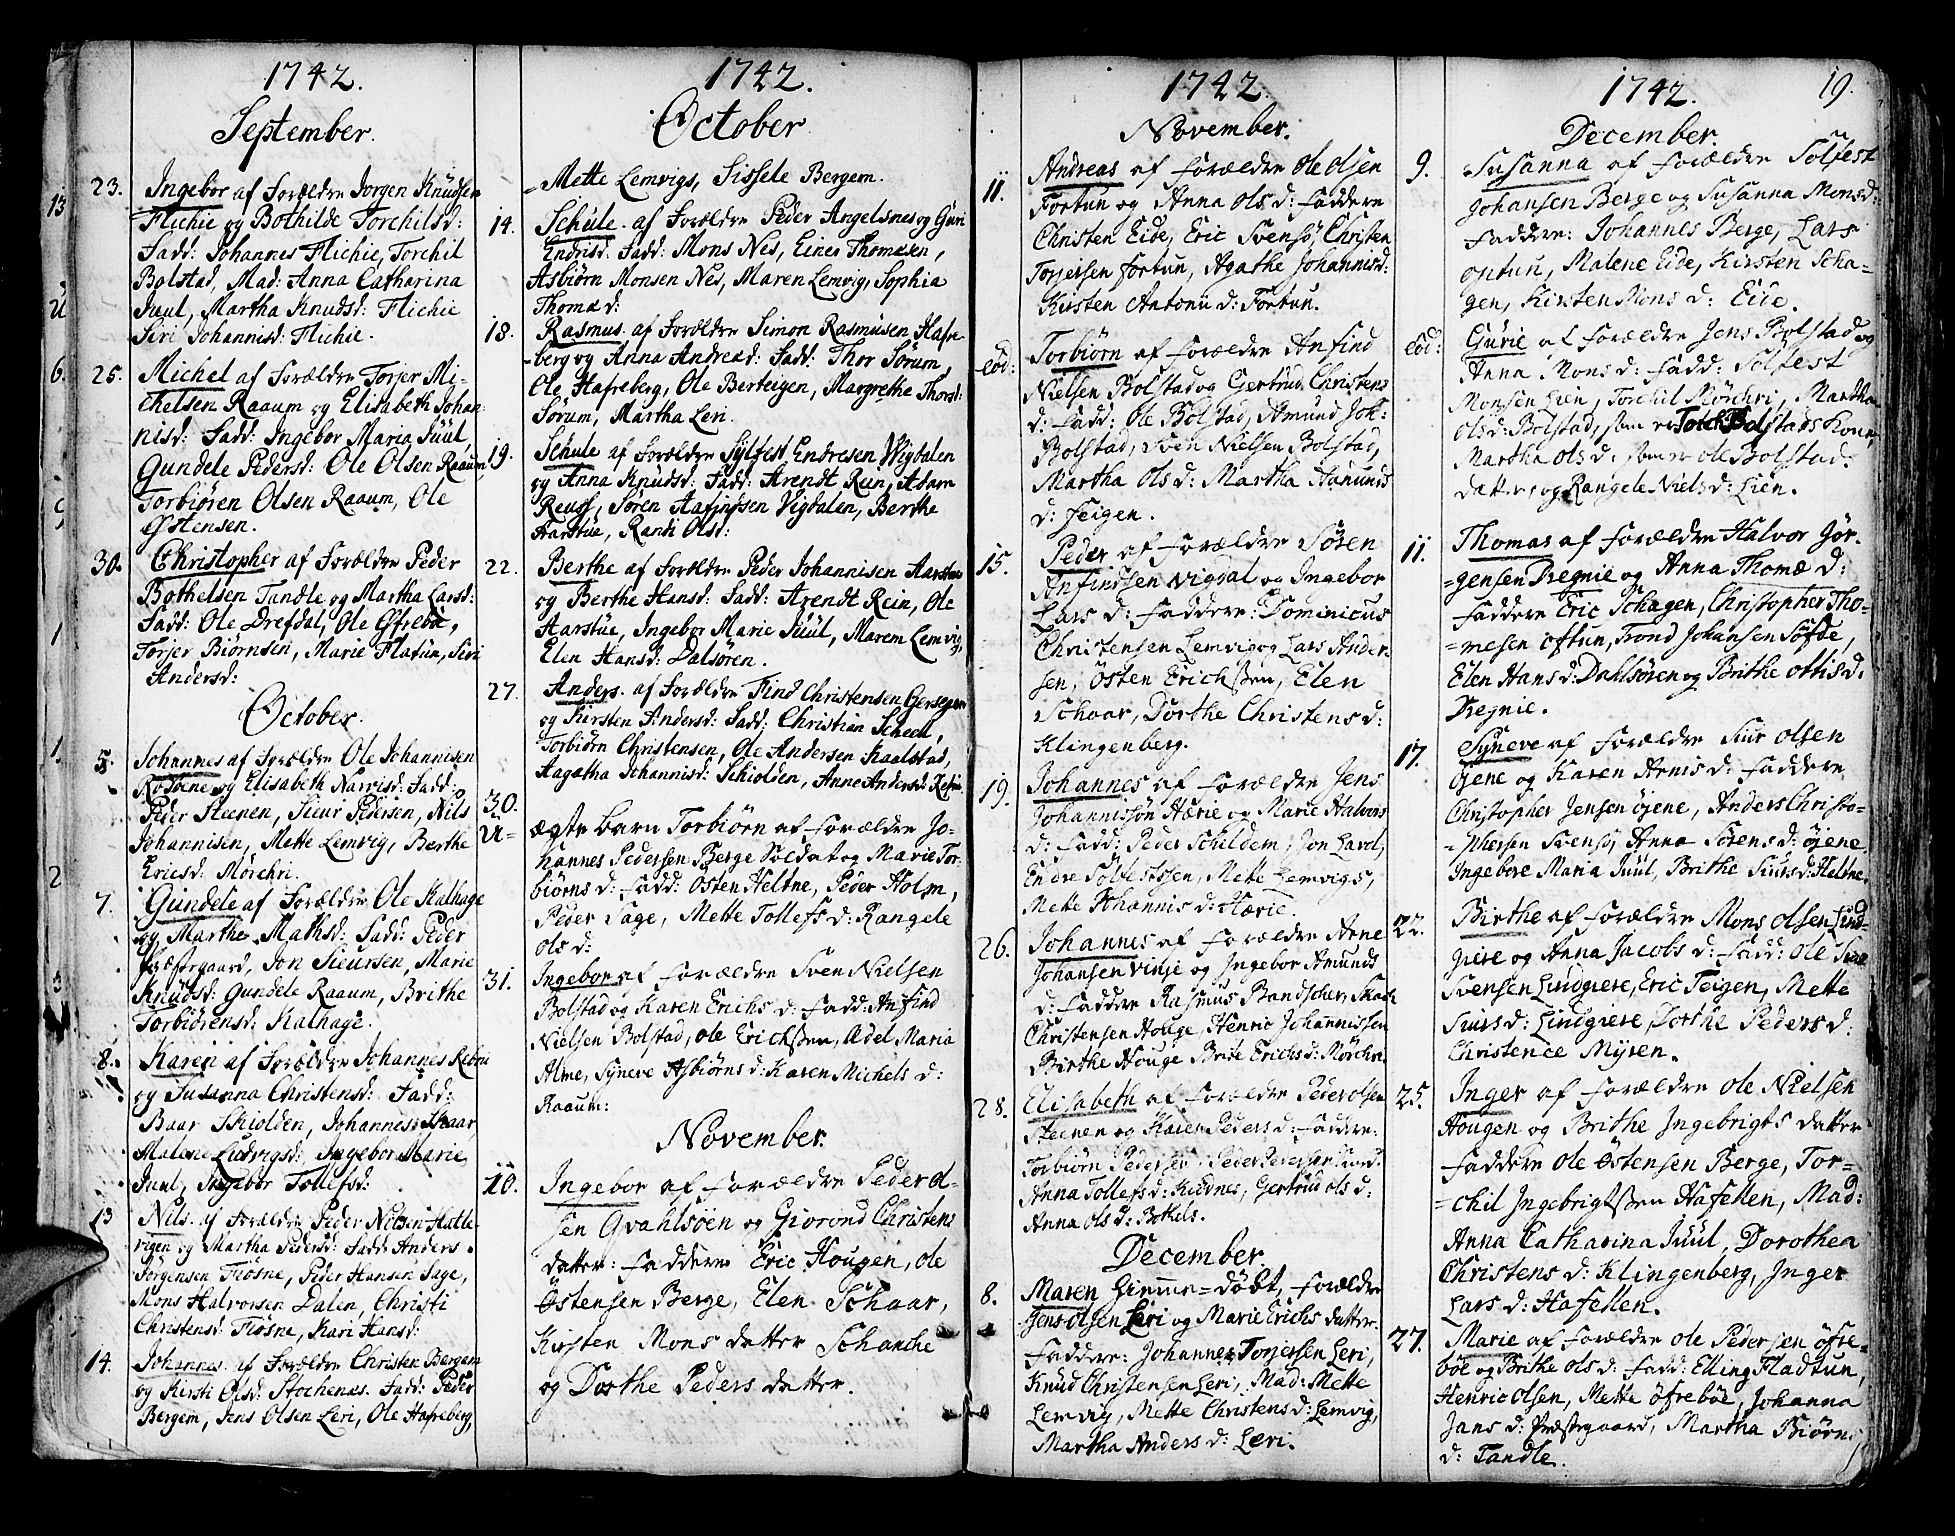 1742.
September.
23. Ingebor af Forældre Jorgen Knudsen
Flichie og Bothilde Torchilsd:
Fadd: Johannes Flichie, Torchil
Bolstad, Mad: Anna Catharina
Juul, Martha Knudsd: Flichie
Siri Johannisd: Flichie.
25. Michel af Forældre Torjer Mi-
chelsen Raaum og Elisabeth Johan
nisd: Fadd: Ingebor Maria Juul,
Gundele Pedersd: Ole Olsen Raaum
Torbiören Olsen Raaum, Ole
Östensen.
30. Christopher af Forældre Peder
Bothelsen Tandle og Martha Larsd:
Fadd: Ole Drefdal, Ole Öfrebö,
Torjer Biörnsen, Marie Flatun, Siri
Andersd:
October.
5. Johannes af Forældre Ole Johannisen
og Elisabeth Narvisd: Fadd:
Peder Steenen, Siur Pedersen, Nils
Johannisen, Mette Lemvig, Berthe
Ericsd: Mörchri.
7. Gundele af Forældre Ole Kalhage
og Marthe Mathsd: Fadd: Peder
Præstegaard, Jon Sieursen, Marie
Knudsd: Gundele Raaum, Brithe
Torbiörensd: Kalhage.
8. Karen af Forældre Johannes
og Susanna Christensd: Fadd:
Baar Skiolden, Johannes Skaar,
Malene Ludvigsd: Ingebor Marie
Juul, Ingebor Tollefsd:
13 Nils af Forældre Peder Nilsen Hatle-
vigen og Martha Pedersd: Fadd: Anders
Jörgensen Fiösne, Peder Hansen Sage,
Mons Halvorsen Dalen, Christi
Christensd: Fiösne, Kari Hansd:
14. Johannes af Forældre Christen Bergem
og Kirsti Olsd: Stochenæs. Fadd: Peder
Bergem, Jens Olsen Leri, Ole Hafreberg,
1742.
October
= Mette Lemvigs, Sissele Bergem.
14. Schule af Forældre Peder Angelsnes og Guri
Endrisd. Fadd: Mons Nes, Einer Thomesen,
Asbiörn Monsen Nes, Maren Lemvig, Sophia
Thomæd:
18. Rasmus af Forældre Simon Rasmusen Hafre
-berg og Anna Andread: Fadd: Thor Sörum,
Ole Hafreberg, Ole Berteigen, Margrethe Thorsd:
Sörum, Martha Leri.
19. Schule af Forældre Sylfest Endresen Vigdalen
og Anna Knudsd: Fadd: Arendt Rein, Adam
Reuss, Sören Vigdalen, Berthe
Aarstue, Randi Olsd:
22. Berthe af Forældre Peder Johannisen Aarstue
og Berthe Hansd: Fadd: Arendt Rein, Ole
Aarstue, Ingebor Marie Juul, Maren Lemvig,
Elen Hansd: Dalsören.
27. Anders af Forældre Find Christensen
og Kiersten Andersd: Fadd: Christian
Torbiörn Christensen, Ole Andersen Kaalstad,
Aagatha Johannisd: Schiolden, Anne Andersd:
30. U= ægte barn Torbiörn af forældre Jo-
hannes Pedersen Berge Soldat og Marie Tor-
biörns d: Fadd: Östen Heltne, Peder Holm,
Peder Sage, Mette Tollefs d: Rangele
Ols d:
31. Ingebor af forældre Sven Nielsen
Bolstad og Karen Erichs d: Fadd: Anfind
Nielsen Bolstad, ole Erickssen, Adel Maria
Alme, Syneve Asbiörns d: Karen Michels d:
Raaum:
November.
10. Ingebor af forældre Peder ol-
sen Qvahlsöen og Giorond Christens
datter: faddere Eric Hougen, ole
Östensen Berge, Elen Schaar,
Kirsten Mons datter Schanche
og Dorthe Peders datter.
1742.
November.
11. Andreas af forældre Ole olsen
Fortun og Anna ols d: faddere
Christen Eide, Eric Svensö, Christen
Torjersen fortun, Agathe Johannis d:
Kirsten Antoni d: Fortun.
eod: Torbiörn af forældre Anfind
Nielsen Bolstad og Gertrud Christens
d: Fadd: ole Bolstad, Amund Joh:
Bolstad, Sven Nielsen Bolstad,
Martha Ols d: Martha Amunds
d: Feigen.
15. Peder af forældre Sören
Anfindssen Vigdal og Ingebor
Lars d: faddere: Dominicus
Christensen Lemvig og Lars Ander-
sen, Östen Erickssen, Elen
Schaar, Dorthe Christens d:
Klingenberg.
19. Johannes af forældre Jens
Johannissön Hærie og Marie Halvors
d: Fadd: Peder Schildem, Jon
Endre Sölfestssen, Mette Lemvigs,
Mette Johannis d: Hærie.
26. Johannes af forældre Arne
Johansen Vinje og Ingebor Amunds
d: faddere Rasmus
Christensen Houge, Henric Johannissen
Birthe Houge Brite Erichs d: Mörchri.
28. Elisabeth af forældre Peder olsen
Steenen og Karen Peders d: faddere:
Torbiörn Pedersen, Peder Pedersen
Anna Tollefs d: Kildnes, Gertrud ols d:
Anna ols d: Bothels.
December.
8. Maren Hiemme=döbt, forældre
Jens olsen Leri og Marie Erichs datter.
Faddere: Johannes Torjersen Leri,
Knud Christensen Leri, Mad: Mette
Lemvig, Mette Christens d: Lemvig,
Martha Anders d: Leri.
1742.
19.
December.
9. Susanna af forældre Sölfest
Johansen Berge og Susanna Mons d:
Faddere: Johannes Berge, Lars
optun, Malene Eide, Kirsten Scha=
gen, Kirsten Mons d: Eide.
eod: Gurie af forældre Jens Bolstad og
Anna Mons d: Fadd: Sölfest
Monsen Lien, Torchil Mörchri, Martha
Ols d: Bolstad, som er Torch Bolstads Kone,
Martha Ols d: som er ole Bolstads
datter, og Rangele Niels d: Lien.
11. Thomas af forældre Halvor Jör-
=gensen Dregnie og Anna Thomæ d:
Faddere Eric Schagen, Christopher Tho=
=mesen oftun, Trond Johansen Söfde,
Elen Hans d: Dahlsören og Brithe ottis d:
Dregnie.
17. Syneve af forældre Siur olsen
öjene og Karen Arnis d: Faddere
Christopher Jensen öjene, Anders Christo-
=phersen Svensö, Anna Sörens d: öjene,
Ingebore Maria Juul, Brithe Siurs d: Heltne.
22. Birthe af forældre Mons Olsen Lind-
giere og Anna Jacobs d: Fadd: Ole
Svensen Lindgiere, Eric Teigen, Mette
Siurs d: Lindgiere, Dorthe Peders d:
Christence Myren.
25. Inger af forældre ole Nielsen
Hougen og Brithe Ingebrigts datter
Faddere ole Östensen Berge, Tor=
=chil Ingebrigtssen Hafellen, Mad:
Anna Catharina Juul, Dorothea
Christens d: Klingenberg, Inger
Lars d: Hafellen.
27. Marie af forældre ole Pedersen öfre-
böe og Brithe ols d: Fadd: Elling Fladtun,
Henric Olsen, Mette öfreböe, Johanna
Jans d: Præstegaard, Martha Biörns
d: Tandle.